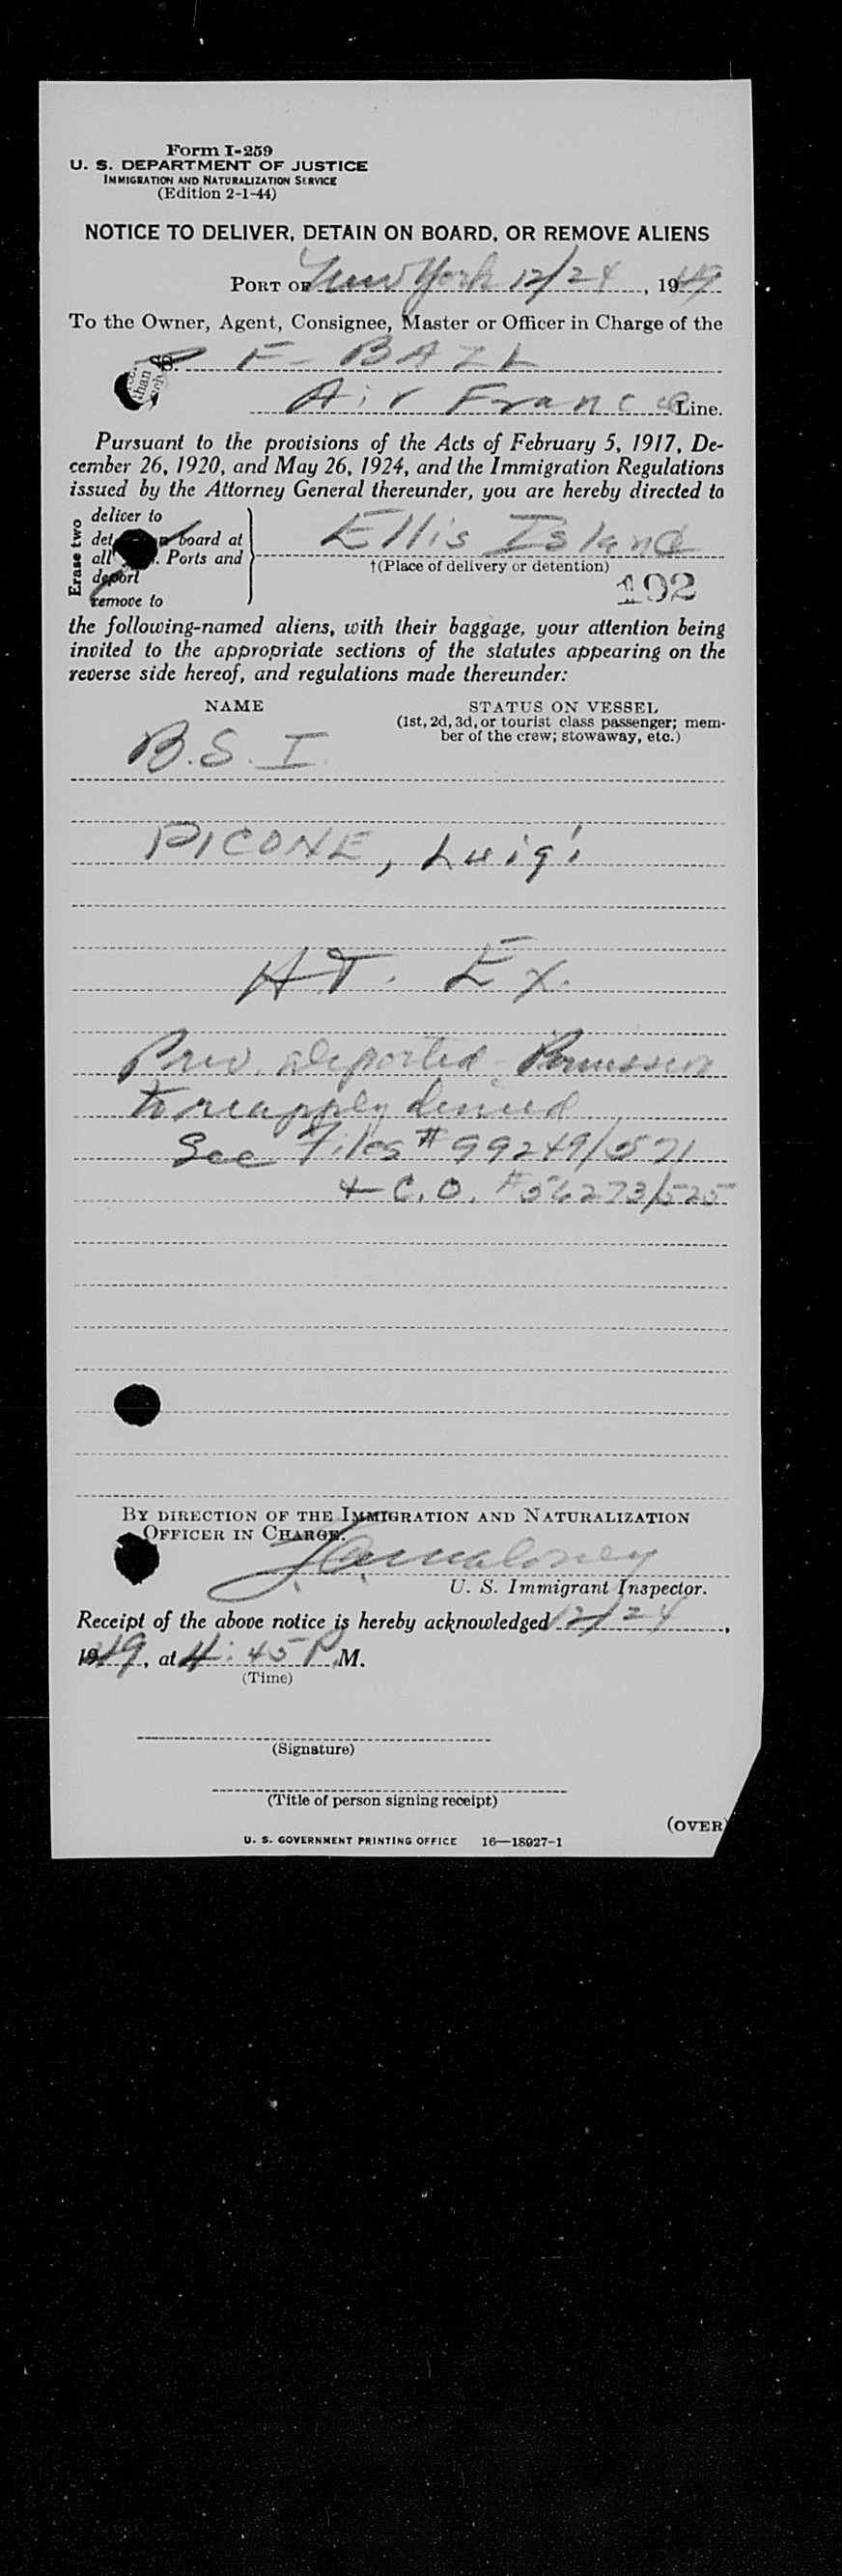 Form I-259
U. S. DEPARTMENT OF JUSTICE
IMMIGRATION AND NATURALIZATION SERVICE
(Edition 2-1-44)
NOTICE TO DELIVER, DETAIN ON BOARD, OR REMOVE ALIENS
PORT OF New York 12/24, 1949
To the Owner, Agent, Consignee, Master or Officer in Charge of the
SS. F-BAZL
Air France Line.
Pursuant to the provisions of the Acts of February 5, 1917, De-
cember 26, 1920, and May 26, 1924, and the Immigration Regulations
issued by the Attorney General thereunder, you are hereby directed to
Erase two
deliver to
board at
all Ports and
deport
remove to
Ellis Island
†(Place of delivery or detention)
192
the following-named aliens, with their baggage, your attention being
invited to the appropriate sections of the statutes appearing on the
reverse side hereof, and regulations made thereunder:
NAME
STATUS ON VESSEL
(1st, 2d, 3d, or tourist class passenger; mem-
ber of the crew; stowaway, etc.)
B.S.I.
PICONE, Luigi
HT. Ex.
Prev. deported. Permission
to reapply denied
See Files # 99249/571
+ C.O. # 56273/525
BY DIRECTION OF THE IMMIGRATION AND NATURALIZATION
OFFICER IN CHARGE.
U. S. Immigrant Inspector.
Receipt of the above notice is hereby acknowledged 12/24,
1949, at 4:45 P.M.
(Time)
(Signature)
(Title of person signing receipt)
(OVER)
U. S. GOVERNMENT PRINTING OFFICE 16—18927-1